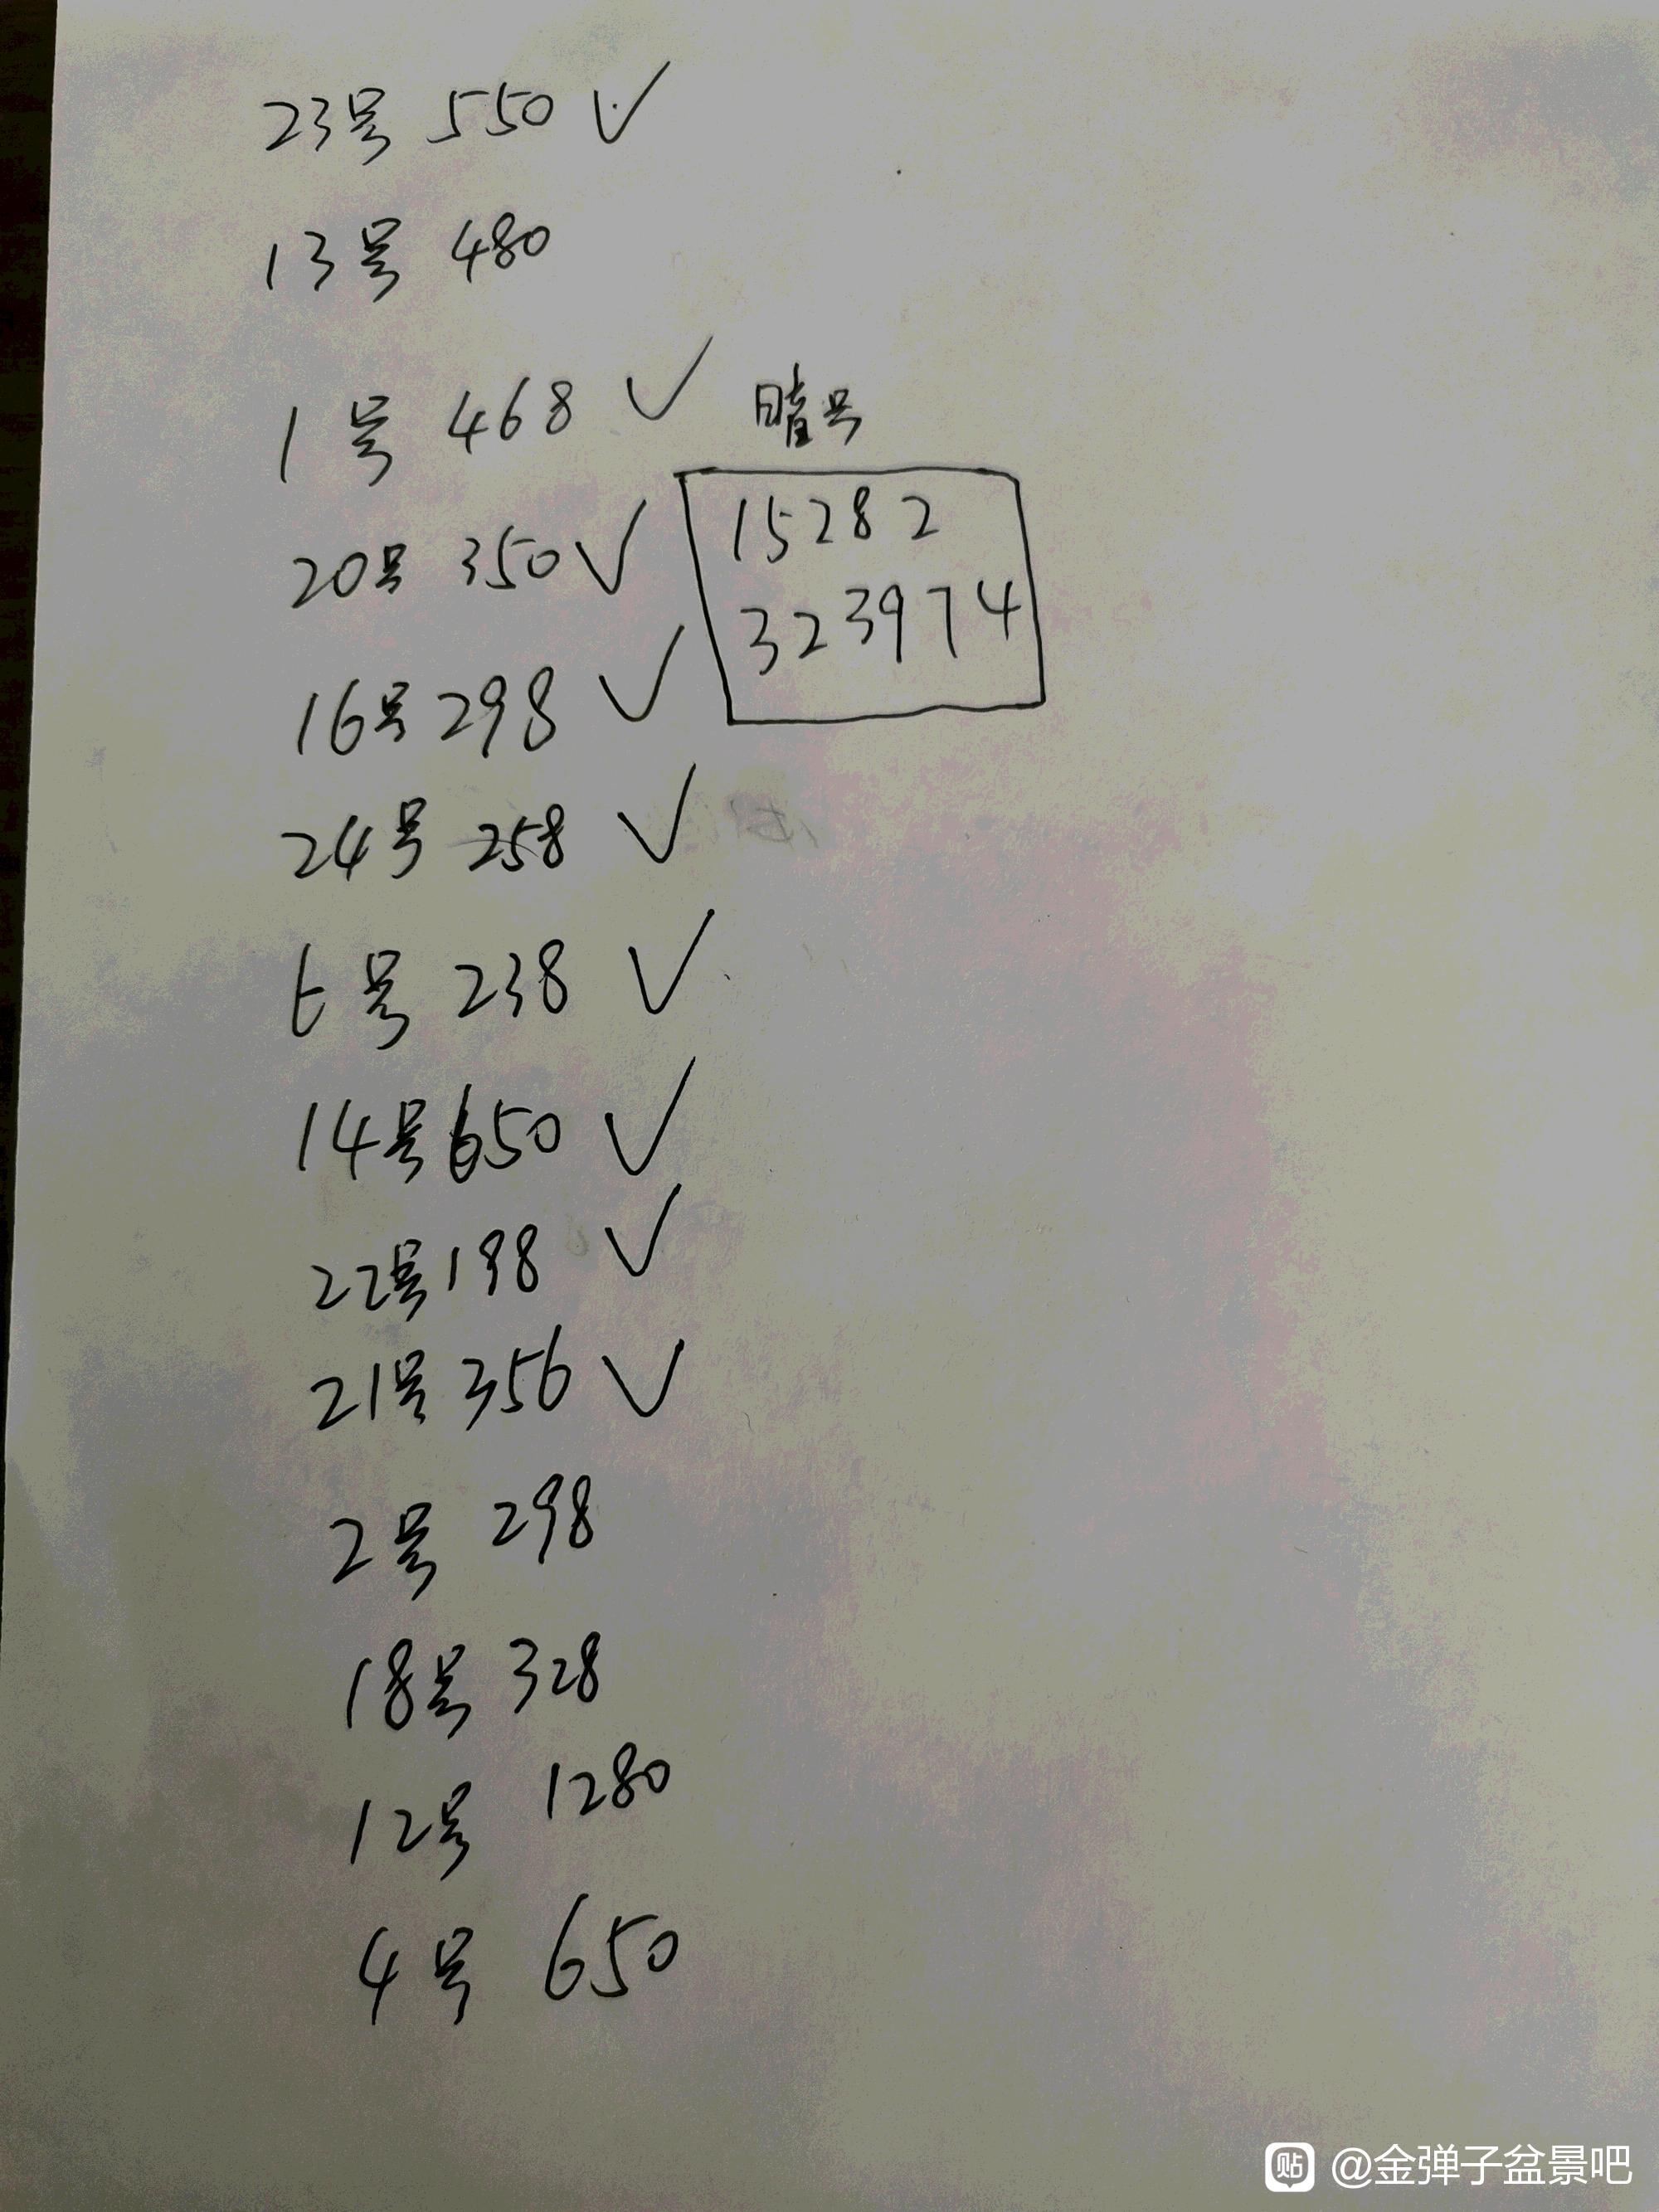 23号 550 ✓
13号 480
1号 468 ✓
暗号
15282
323974
20号 350 ✓
16号 298 ✓
24号 258 ✓
6号 238 ✓
14号 650 ✓
22号 198 ✓
21号 356 ✓
2号 298
18号 328
12号 1280
4号 650
贴 @金弹子盆景吧